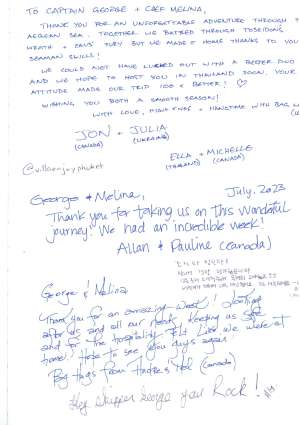 TO CAPTAIN GEORGE + CHEF MELINA,
THANK YOU FOR AN UNFORGETTABLE ADVENTURE THROUGH
AEGEAN SEA. TOGETHER WE BATTLED THROUGH POSEIDONS
WRATH + FURY BUT WE MADE IT HOME THANKS TO YOU
SEAMAN SKILLS!
WE COULD NOT HAVE LUCKED OUT WITH A BETTER DUO
AND WE HOPE TO HOST YOU IN THAILAND SOON. YOUR
ATTITUDE MADE OUR TRIP 100 x BETTER! ♡
WISHING YOU BOTH A SMOOTH SEASON!
WITH LOVE, + WITH
JON + JULIA
(CANADA) (UKRAINE)
ELLA + MICHELLE
(THAILAND) (CANADA)
@villaenjoyphuket
George & Melina, July, 2023
Thank you for taking us on this wonderful
journey! We had an incredible week!
Allan & Pauline (Canada)
George & Melina
Thank you for an amazing week! Looking
after us and all our needs. Keeping us safe
and for the hospitality. Felt like we were at
home! Hope to see you guys again!
Big hugs from (Canada)
Hey Skipper George you Rock!